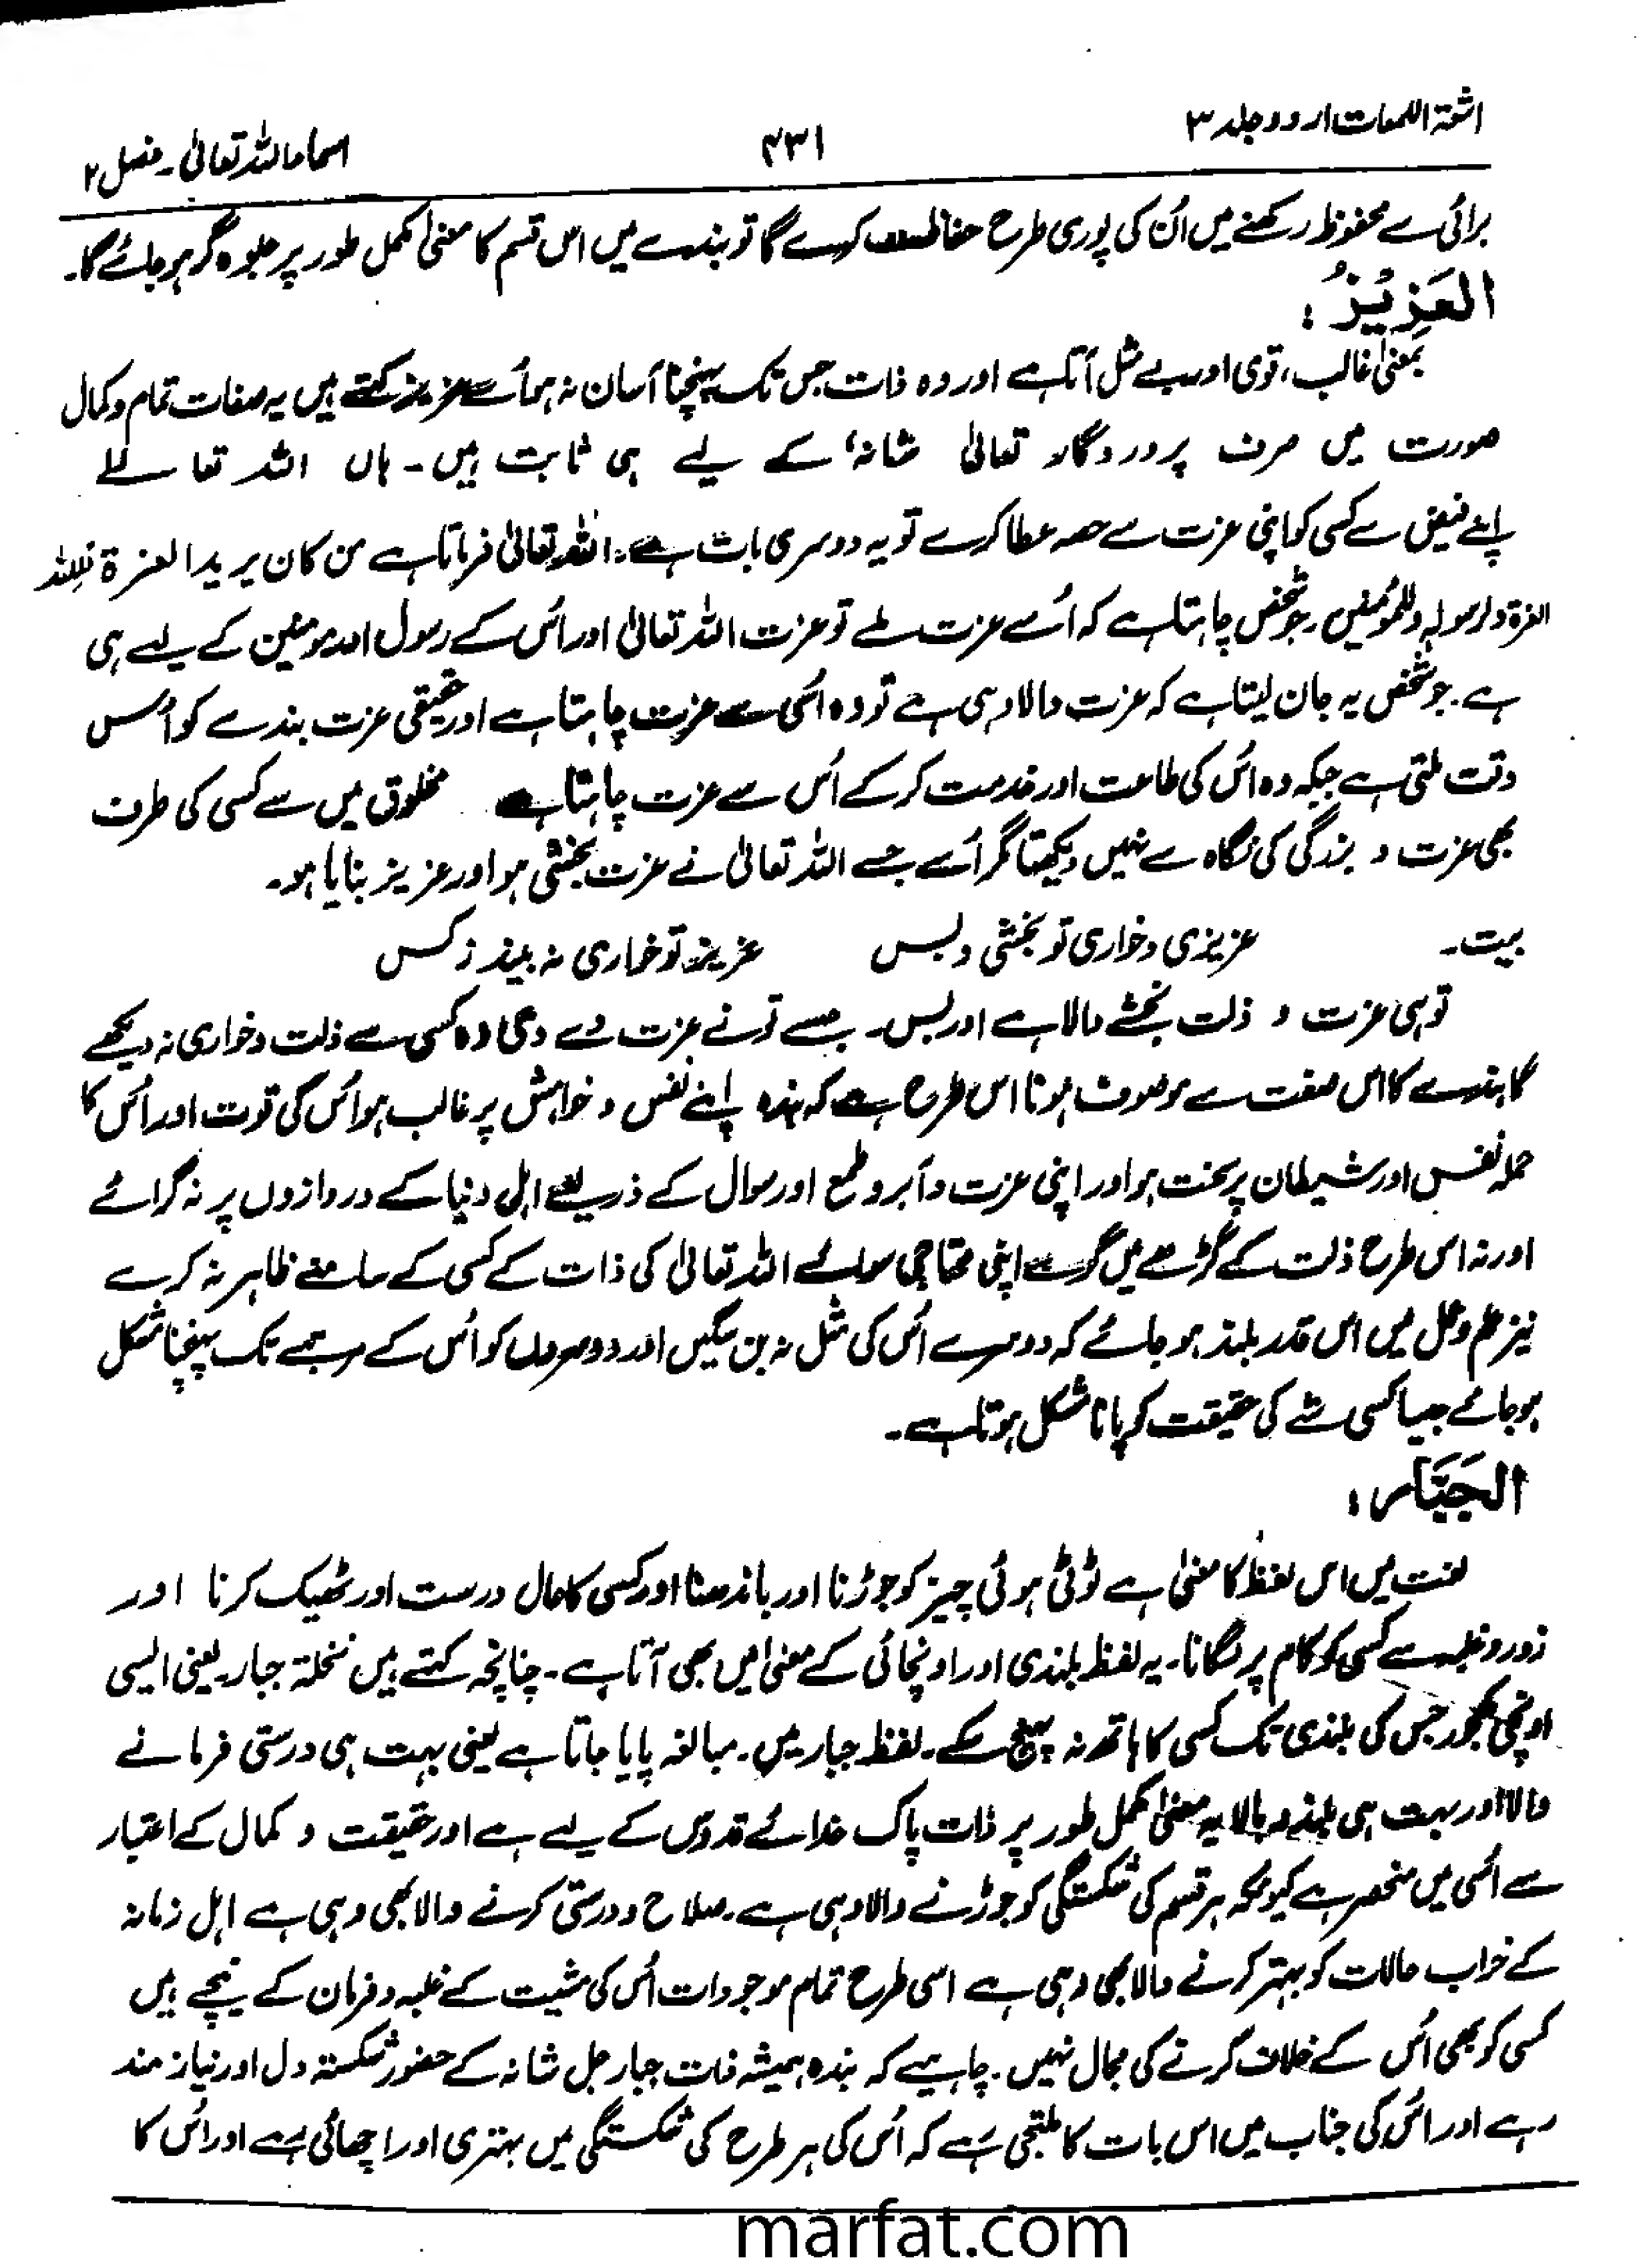 اشعۃ اللمعات اردو جلد ۳
۴۳۱
اسماء اللہ تعالیٰ۔ فصل ۲
برائی سے محفوظ رکھنے میں اُن کی پوری طرح حفاظت کرے گا تو بندے میں اس قسم کا معنیٰ مکمل طور پر جلوہ گر ہو جائے گا۔
العَزِیْزُ :
بمعنیٰ غالب، قوی اور بے مثل آتا ہے اور وہ ذات جس تک پہنچنا آسان نہ ہو اُسے عزیز کہتے ہیں یہ صفات تمام و کمال
صورت میں صرف پروردگار تعالیٰ شانہ' کے لیے ہی ثابت ہیں۔ ہاں اللہ تعالےٰ
اپنے فیض سے کسی کو اپنی عزت سے حصہ عطا کرے تو یہ دوسری بات ہے۔ اللہ تعالیٰ فرماتا ہے من کان یرید العزۃ فللّٰہ
العزۃ ولرسولہٖ وللمؤمنین۔ جو شخص چاہتا ہے کہ اُسے عزت ملے تو عزت اللہ تعالیٰ اور اُس کے رسول اور مومنین کے لیے ہی
ہے۔ جو شخص یہ جان لیتا ہے کہ عزت والا وہی ہے تو وہ اُسی سے عزت چاہتا ہے اور حقیقی عزت بندے کو اُس
وقت ملتی ہے جبکہ وہ اُس کی طاعت اور خدمت کر کے اُس سے عزت چاہتا ہے مخلوق میں سے کسی کی طرف
بھی عزت و بزرگی کی نگاہ سے نہیں دیکھتا مگر اُسے جسے اللہ تعالیٰ نے عزت بخشی ہو اور عزیز بنایا ہو۔
بیت۔ عزیزی و خواری تو بخشی و بس عزیز تو خواری نہ بیند ز کس
تو ہی عزت و ذلت بخشنے والا ہے اور بس۔ جسے تو نے عزت دے دی وہ کسی سے ذلت و خواری نہ دیکھے
گا بندے کا اس صفت سے موصوف ہونا اس طرح ہے کہ بندہ اپنے نفس و خواہش پر غالب ہو اُس کی قوت اور اُس کا
حملہ نفس اور شیطان پر سخت ہو اور اپنی عزت و آبرو طمع اور سوال کے ذریعے اہل دنیا کے دروازوں پر نہ گرائے
اور نہ اس طرح ذلت کے گڑھے میں گرے اپنی محتاجی سوائے اللہ تعالیٰ کی ذات کے کسی کے سامنے ظاہر نہ کرے
نیز علم و عمل میں اس قدر بلند ہو جائے کہ دوسرے اُس کی مثل نہ بن سکیں اور دوسروں کو اُس کے مرتبے تک پہنچنا مشکل
ہو جائے جیسا کسی شے کی حقیقت کو پانا مشکل ہوتا ہے۔
الجَبَّار :
لغت میں اس لفظ کا معنیٰ ہے ٹوٹی ہوئی چیز کو جوڑنا اور باندھنا اور کسی کا حال درست اور ٹھیک کرنا اور
زور و غلبہ سے کسی کو کام پر لگانا۔ یہ لفظ بلندی اور اونچائی کے معنیٰ میں بھی آتا ہے۔ چنانچہ کہتے ہیں نخلۃ جبار یعنی ایسی
اونچی کھجور جس کی بلندی تک کسی کا ہاتھ نہ پہنچ سکے۔ لفظ جبار میں۔ مبالغہ پایا جاتا ہے یعنی بہت ہی درستی فرمانے
والا اور بہت ہی بلند و بالا یہ معنیٰ مکمل طور پر ذات پاک خدائے قدوس کے لیے ہے اور حقیقت و کمال کے اعتبار
سے اُسی میں منحصر ہے کیونکہ ہر قسم کی شکستگی کو جوڑنے والا وہی ہے۔ صلاح و درستی کرنے والا بھی وہی ہے اہل زمانہ
کے خراب حالات کو بہتر کرنے والا بھی وہی ہے اسی طرح تمام موجودات اُس کی مشیت کے غلبہ و فرمان کے نیچے ہیں
کسی کو بھی اُس کے خلاف کرنے کی مجال نہیں۔ چاہیے کہ بندہ ہمیشہ ذات جبار جل شانہ کے حضور شکستہ دل اور نیاز مند
رہے اور اُس کی جناب میں اس بات کا ملتجی رہے کہ اُس کی ہر طرح کی شکستگی میں بہتری اور اچھائی ہے اور اُس کا
marfat.com